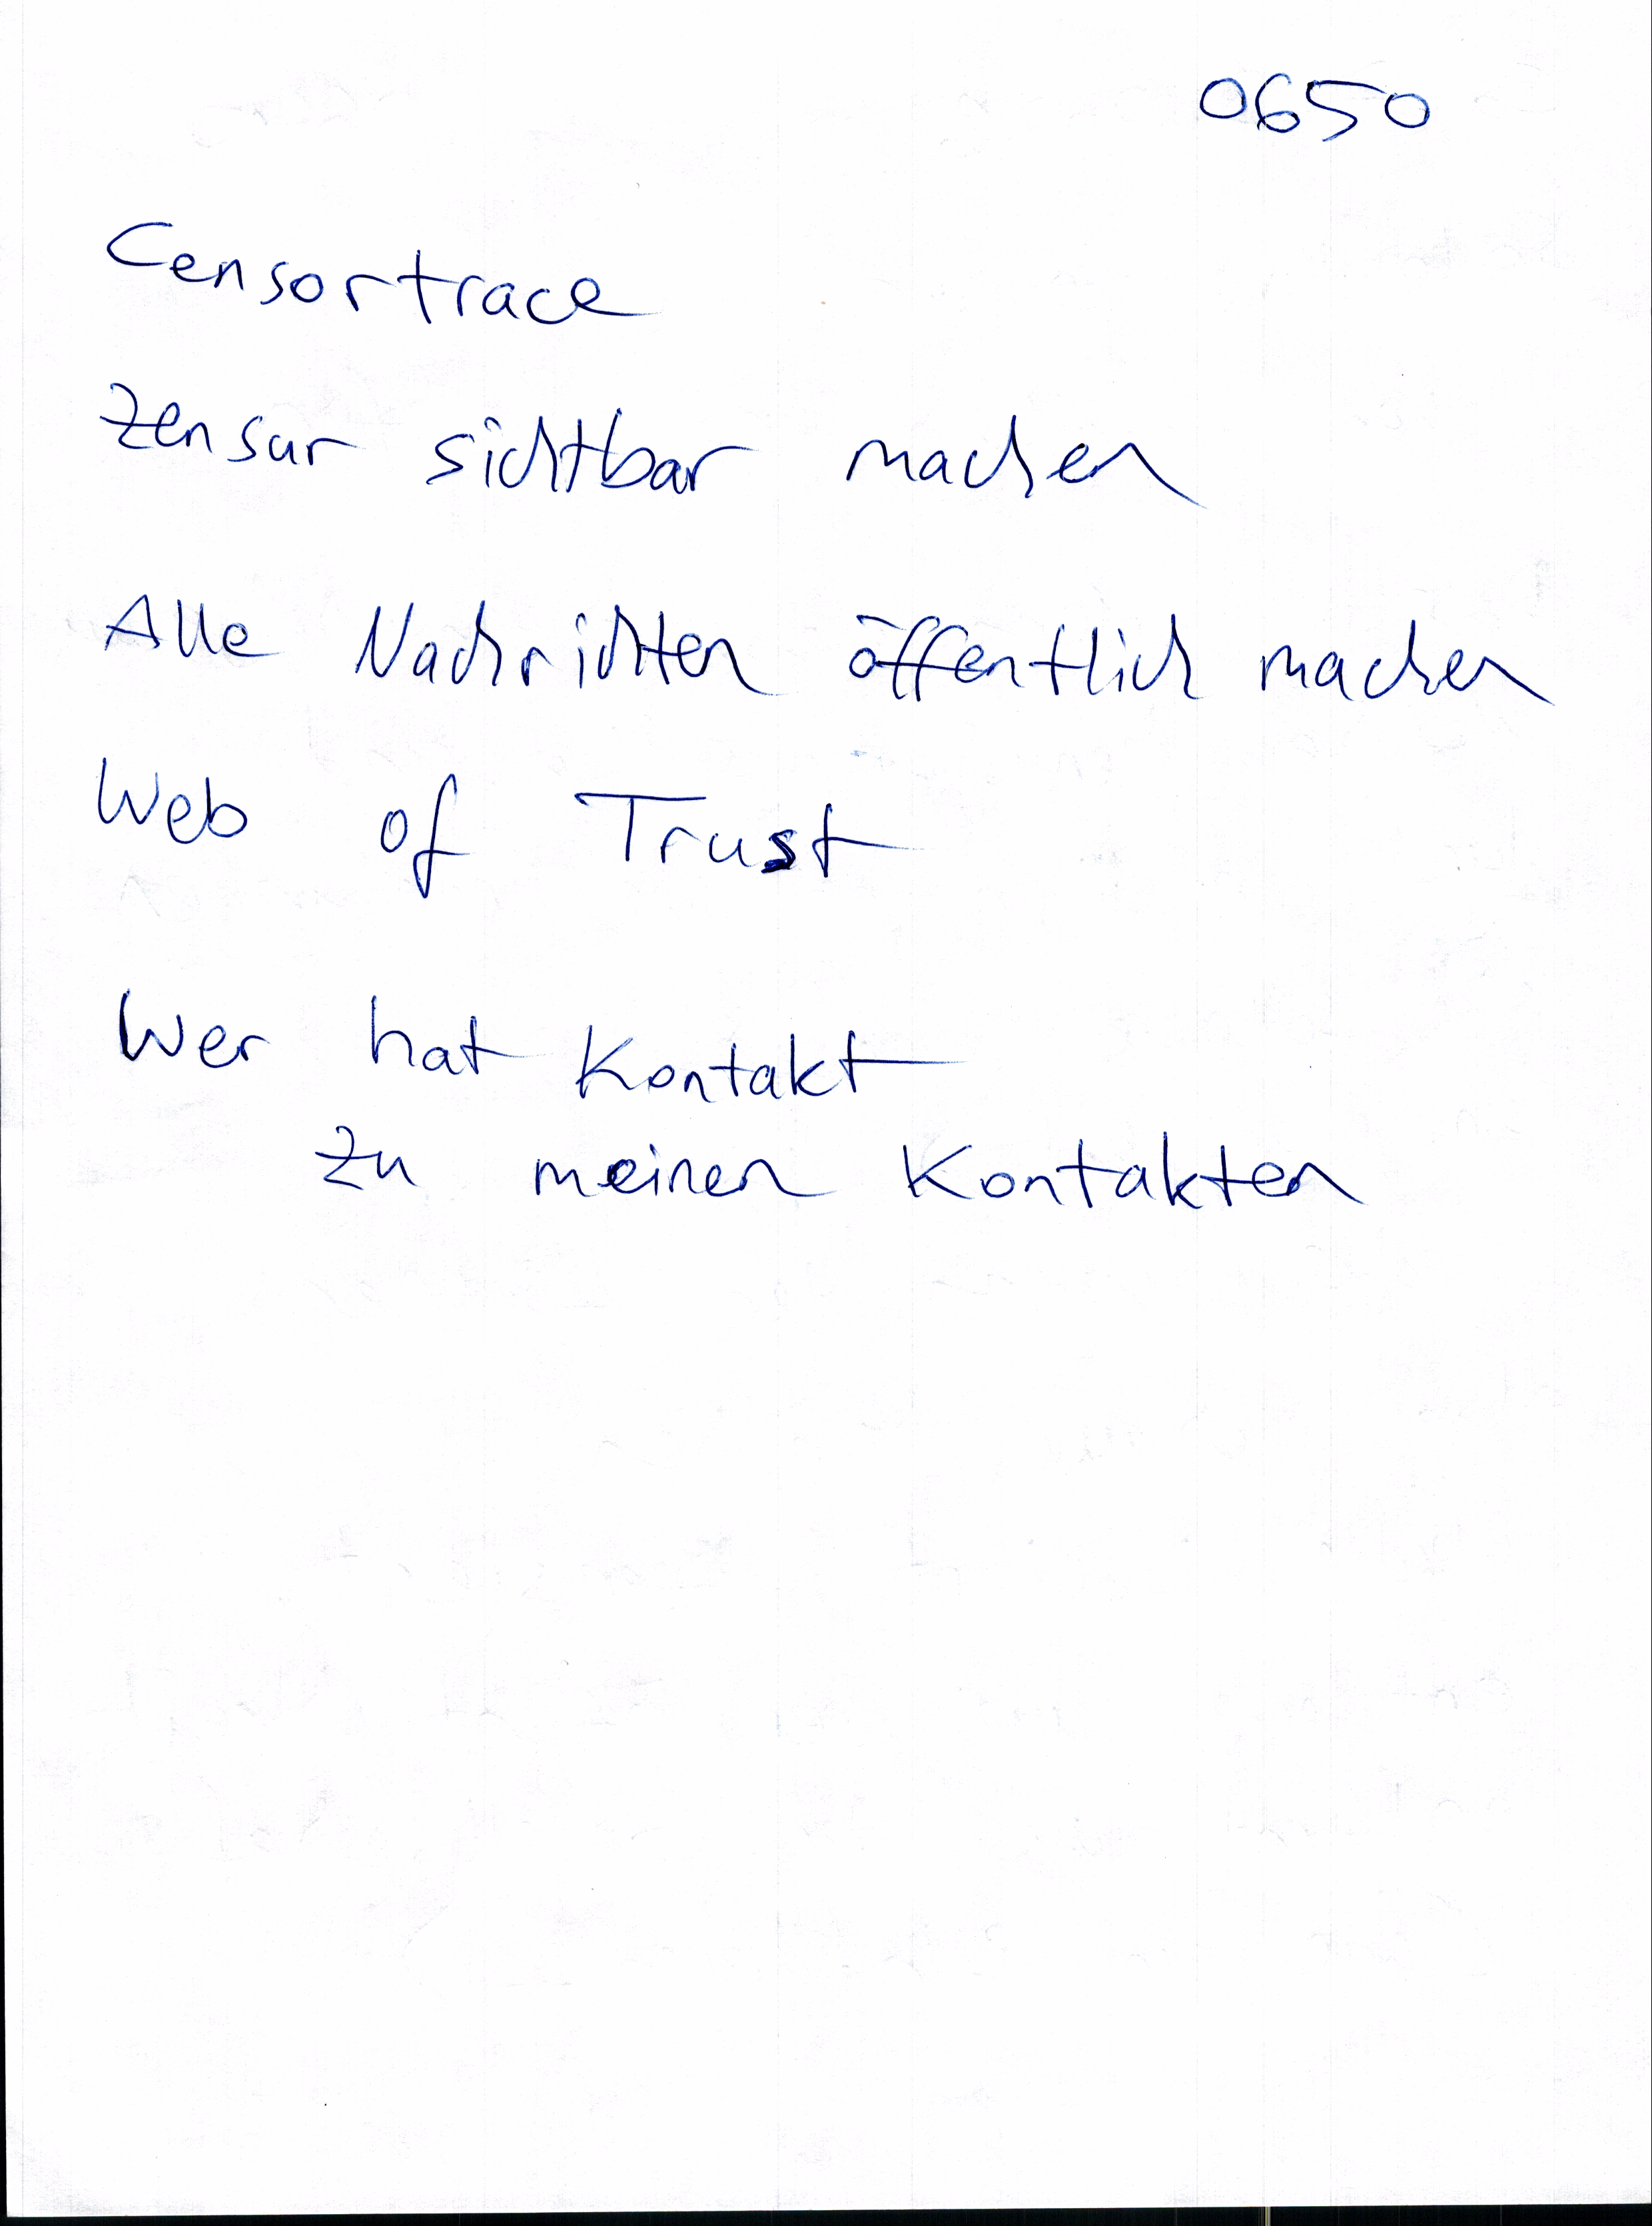 0650
Censortrace
Zensur sichtbar machen
Alle Nachrichten öffentlich machen
Web of Trust
Wer hat Kontakt
zu meinen Kontakten